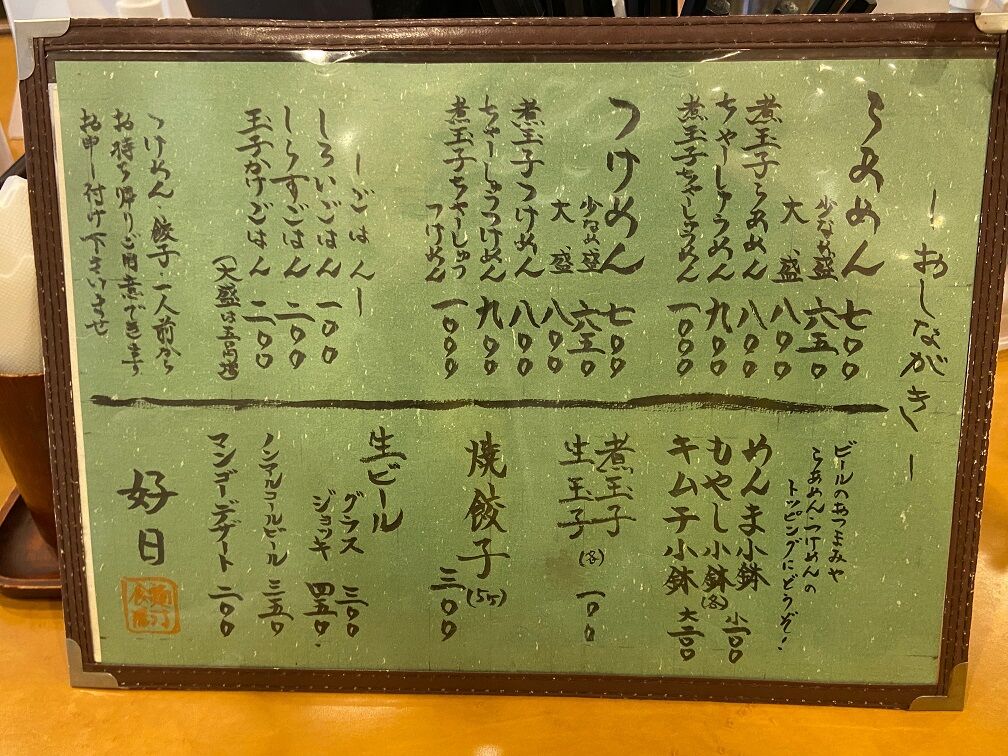 －おしながき－
らあめん 七〇〇
少なめ盛 六五〇
大盛 八〇〇
煮玉子らあめん 八〇〇
ちゃーしゅうめん 九〇〇
煮玉子ちゃーしゅうめん 一〇〇〇
つけめん 七〇〇
少なめ盛 六五〇
大盛 八〇〇
煮玉子つけめん 八〇〇
ちゃーしゅうつけめん 九〇〇
煮玉子ちゃーしゅう
つけめん 一〇〇〇
－ごはん－
しろいごはん 一〇〇
しらすごはん 二〇〇
玉子かけごはん 二〇〇
(大盛は五〇円増)
つけめん・餃子・一人前から
お持ち帰りご用意できます
お申し付け下さいませ
ビールのおつまみや
らあめん・つけめんの
トッピングにどうぞ！
めんま小鉢 小一〇〇
もやし小鉢(各)
キムチ小鉢 大二〇〇
煮玉子
生玉子 (各) 一〇〇
焼餃子(5ケ) 三〇〇
生ビール
グラス 三〇〇
ジョッキ 四五〇
ノンアルコールビール 三五〇
マンゴーデザート 二〇〇
好日